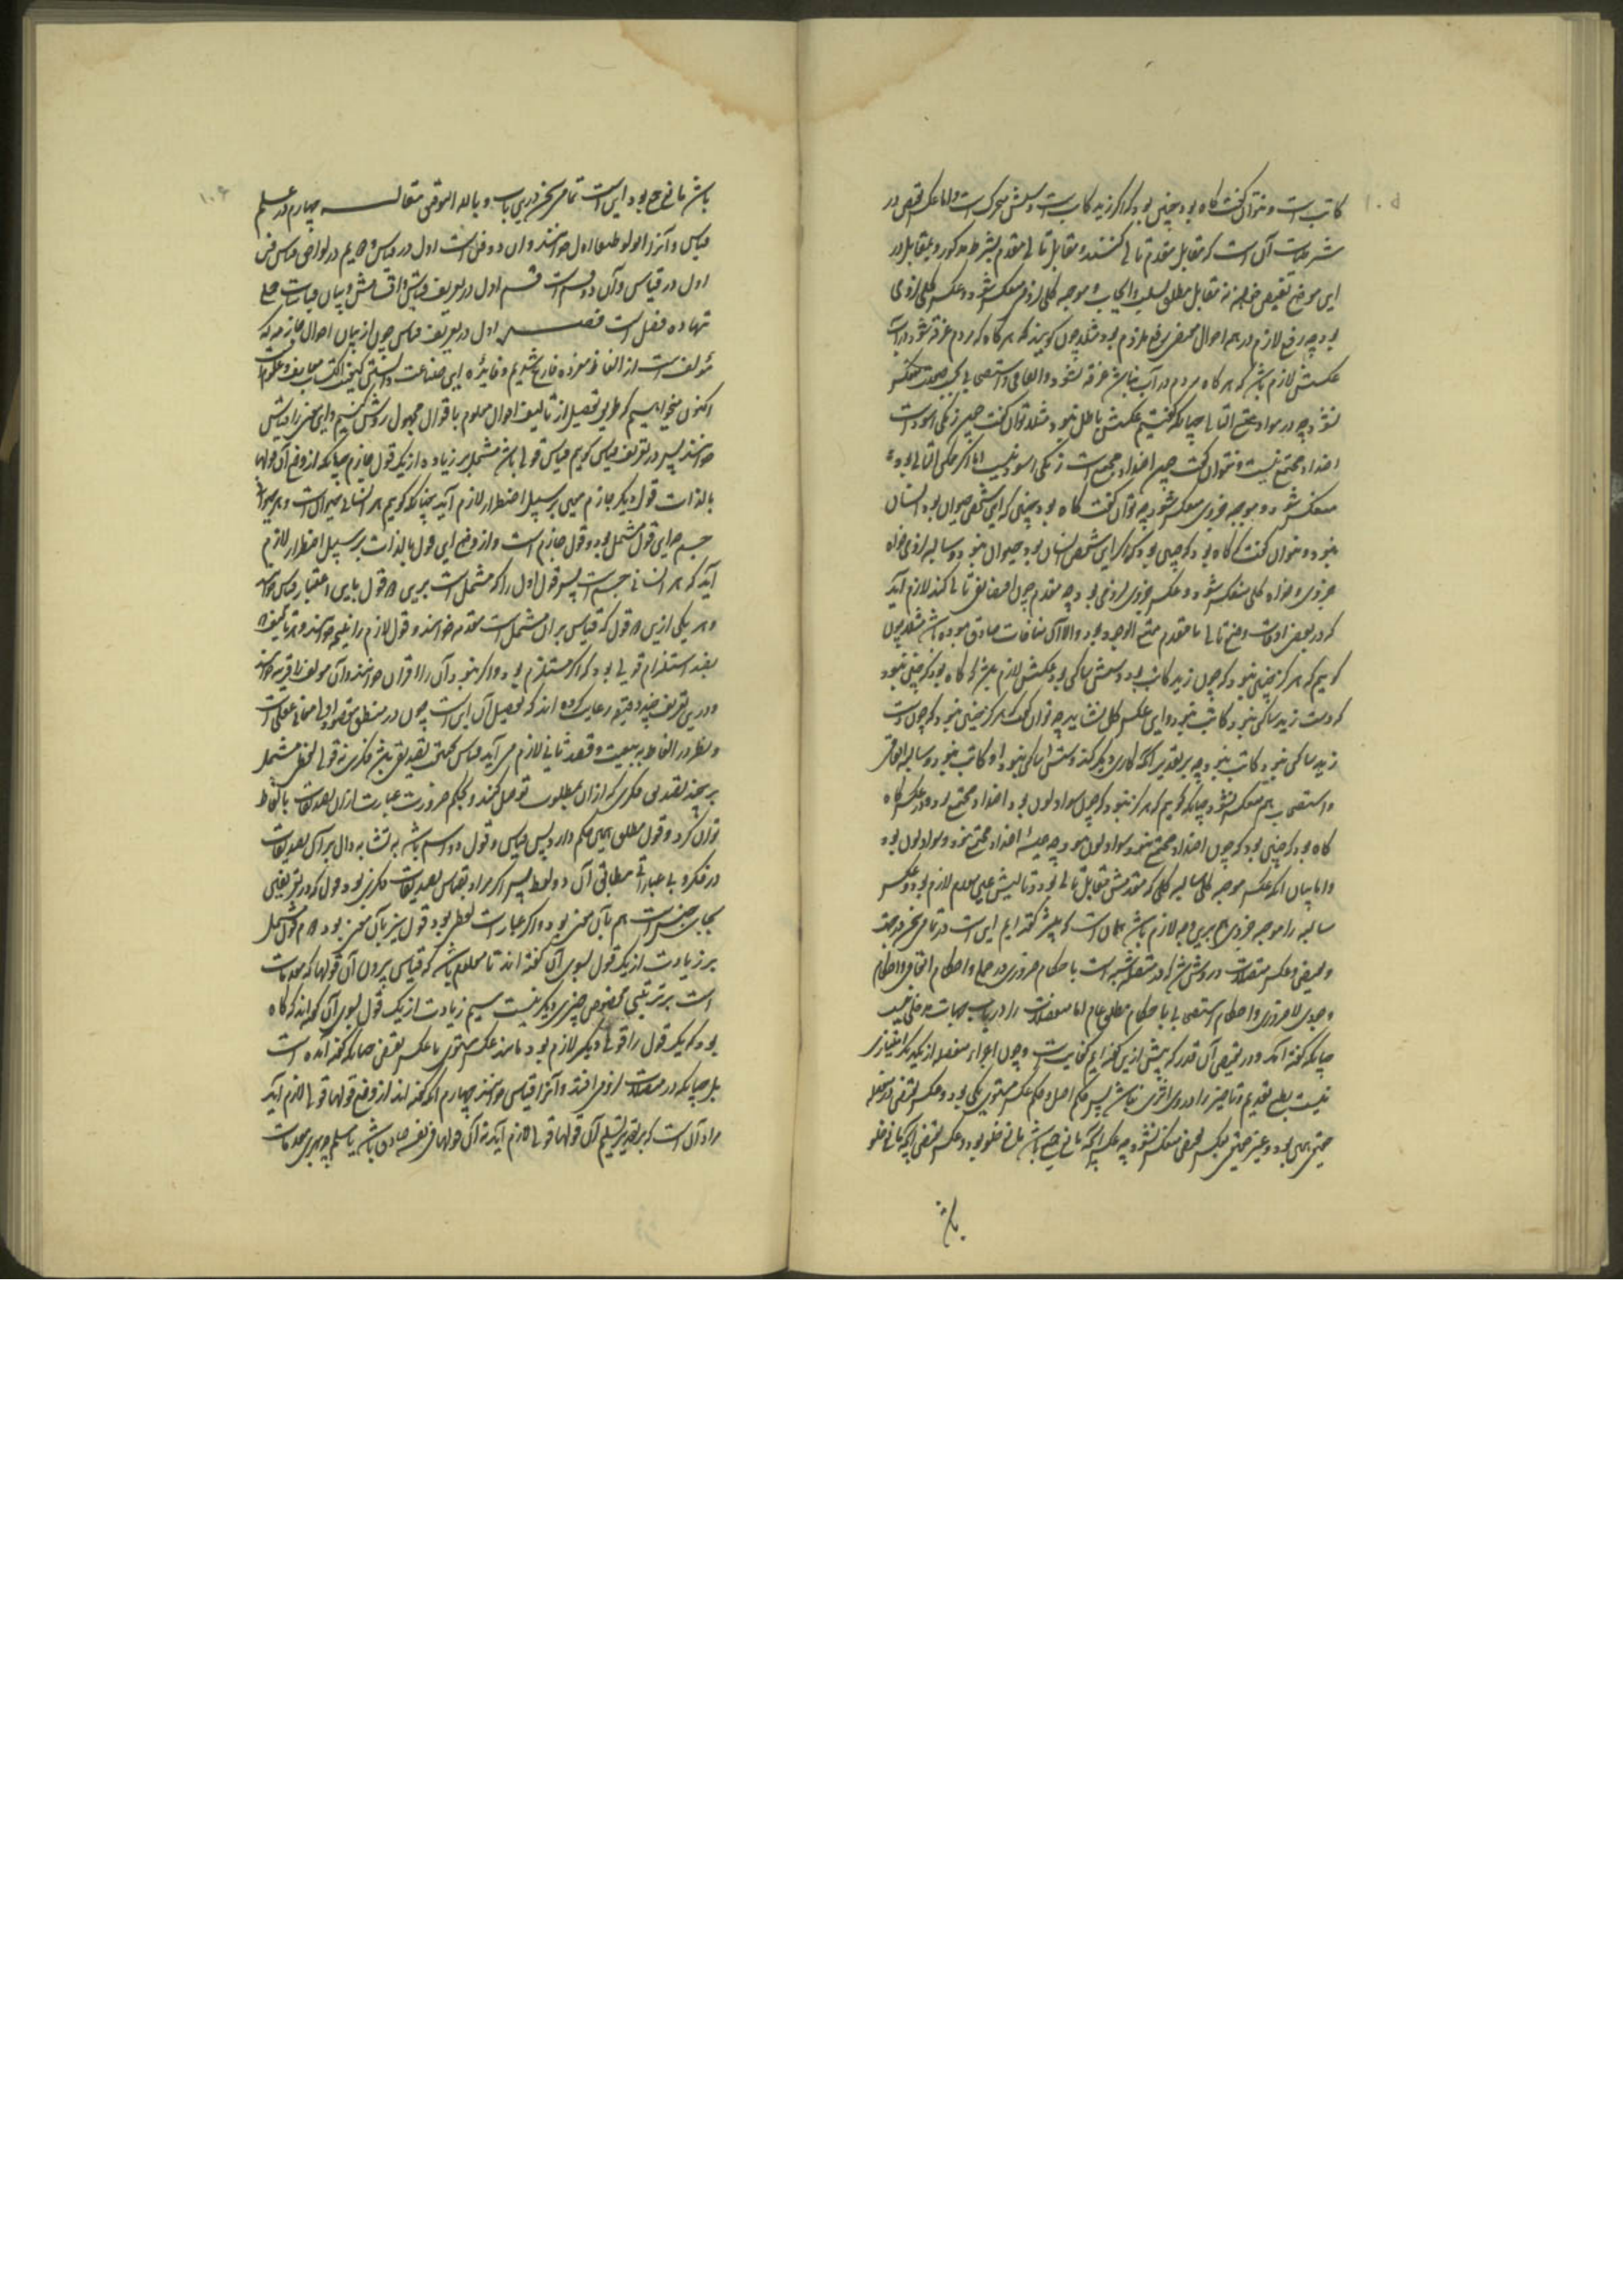 کاتب است و نتوان گفت گاه بود چنین بود که اگر زید کاتب است دستش متحرک است و اما عکس نقیض در
شرطیات آن است که مقابل مقدم تالی کنند و مقابل تالی مقدم بشرط مذکور و بمقابل در
این موضع نقیض خواهیم نه مقابل مطلق بسلب و ایجاب و موجبه کلی لزومی منعکس شود و عکسش کلی لزومی
بود چه رفع لازم در همه احوال مقتضی رفع ملزوم بود مثلا چون گویند که هر گاه که مردم غرقه شود در آب
عکسش لازم باشد که هر گاه مردم در آب نباشد غرقه نشود و اتفاقی و استصحابی صحت منعکس
نشود چه در مواد ممتنع التالی چنانکه گفتیم عکسش باطل بود مثلا توان گفت چون زنگی اسود است
اضداد مجتمع نیست و نتوان گفت چون اضداد مجتمع است زنگی اسود نیست اما اگر حکم اتفاقی بود
منعکس شود و موجبه جزوی منعکس نشود چه توان گفت گاه بود چنین که این شخص حیوان بود انسان
نبود و نتوان گفت گاه بود که چنین بود که اگر این شخص انسان بود حیوان نبود و سالبه لزومی خواه
جزوی و خواه کلی منعکس شود و عکس جزوی لزومی بود چه مقدم چون اقتضاء نقیض تالی نکند لازم آید
که در بعضی اوقات وضع تالی با مقدم ممتنع الوجود بود و الا آن منافات صادق نبوده باشد مثلا چون
گوییم که هرگز چنین نبود که چون زید کاتب بود دستش ساکن بود عکسش لازم باشد که گاه بود که چنین نبود
که دست زید ساکن نبود کاتب نبود و این عکس کلی نشاید چه توان گفت هرگز چنین نبود که چون دست
زید ساکن نبود کاتب نبود چه بر تقدیر آنکه کاری دیگر کند دستش ساکن نبود و او کاتب نبود و سالبه اتفاقی
و استصحابی هم منعکس نشود چنانکه گوییم که هرگز نبود که چون سواد لون بود اضداد مجتمع بود و در عکس گاه
گاه بود که چنین بود که چون اضداد مجتمع نبود سواد لون نبود چه همیشه اضداد مجتمع نبود و سواد لون بود
و اما بیان آنکه عکس موجبه کلی سالبه کلی که مقدمش مقابل تالی بود و تالیش عین مقدم لازم بود و عکس
سالبه را موجبه جزوی هم برین وجه لازم باشد همان است که پیشتر گفته ایم این است تمامی سخن در جهت
و نقیض و عکس متصلات و روشن شد که در متصله شبیه است باحکام ضروری در حملی و احکام اتفاقی و احکام
وجودی لاضروری و احکام استصحابی باحکام مطلق عام اما منفصلات را در باب جهات مدخلی نیست
چنانکه گفته آمد و در نقیض آن قدر که پیش ازین گفته ایم کفایت است و چون اجزاء منفصله از یکدیگر امتیازی
نیست بطبع تقدیم و تاخیر را در وی اثری نباشد پس حکم اصل و حکم عکس مستوی یکی بود و عکس نقیض در منفصله
حقیقی همین بود و غیر حقیقی بعکس نقیض منعکس نشود چه عکس آنچه مانع جمع باشد مانع خلو بود و عکس نقیض آنچه مانع خلو
باشد
۱۰۵
باشد مانع جمع بود این است تمامی سخن درین باب و بالله التوفیق مقالت چهارم در علم
قیاس و آنرا انولوطیقا اول خوانند و آن دو فن است اول در قیاس و دویم در لواحق قیاس فن
اول در قیاس و آن دو قسم است قسم اول در تعریف قیاس و اقسامش و بیان قیاسات حملی
تنها ده فصل است فصل اول در تعریف قیاس چون از بیان احوال جازمه که
مؤلف است از الفاظ مفرده فارغ شدیم و فایده این صناعت دانستن کیفیت اکتساب معارف و علوم است
اکنون میخواهیم که طریق تحصیل از تألیف اقوال معلوم با قوال مجهول روشن کنیم و این سخن را قیاس
خوانند پس در تعریف قیاس گوییم قیاس قولی باشد مشتمل بر زیاده از یک قول جازم چنانکه از وضع آن قولها
بالذات قول دیگر جازم معین بر سبیل اضطرار لازم آید چنانکه گوییم هر انسانی حیوان است و هر حیوانی
جسم چه این قول مشتمل بود بر دو قول جازم است و از وضع این قول بالذات بر سبیل اضطرار لازم
آید که هر انسانی جسم است پس قول اول را که مشتمل است برین دو قول باین اعتبار قیاس خوانند
و هر یکی ازین دو قول که قیاس بر آن مشتمل است مقدمه خوانند و قول لازم را نتیجه خوانند و هر تألیف که
بصدد استلزام قولی بود که اگر مستلزم بود و اگر نبود آن را اقتران خوانند و آن مؤلف را قرینه خوانند
و درین تعریف چند دقیقه رعایت کرده اند که تحصیل آن این است چون در منطق مقصود اولی معانی عقلی است
و نظر در الفاظ به تبعیت و قصد ثانی لازم می آید قیاس بحقیقت تصدیقی باشد فکری نه قولی لفظی مشتمل
بر چند تصدیق فکری که از آن بمطلوب توصل کنند و بحکم ضرورت عبارت از آن تصدیقات بالفاظ
توان کرد و قول مطلق همین حکم دارد پس قیاس و قول دو اسم باشد به تشابه دال بر آن تصدیقات
در فکر و بر عباراتی مطابق آن در لفظ پس اگر مراد بقیاس تصدیقات فکری بود قول که در تعریفش
بجای جنس است هم بآن معنی بود و اگر عبارات لفظی بود قول نیز بآن معنی بود دوم قول مشتمل
بر زیادت از یک قول بسوی آن گفته اند تا معلوم باشد که قیاس بیرون آن قولها که مقدمات
است بر ترتیبی مخصوص چیزی دیگر نیست سیم زیادت از یک قول بسوی آن گفته اند که گاه
بود که یک قول را قولی دیگر لازم بود مانند عکس مستوی یا عکس نقیض چنانکه گفته آمده است
بل چنانکه در متصلات لزومی افتد و آنرا قیاس نخوانند چهارم آنکه گفته اند از وضع قولها قولی لازم آید
مراد آن است که بر تقدیر تسلیم آن قولها قولی لازم آید نه آنکه آن قولها فی نفسه صادق باشد یا مسلم چه هر مقدمات
۱۰۶